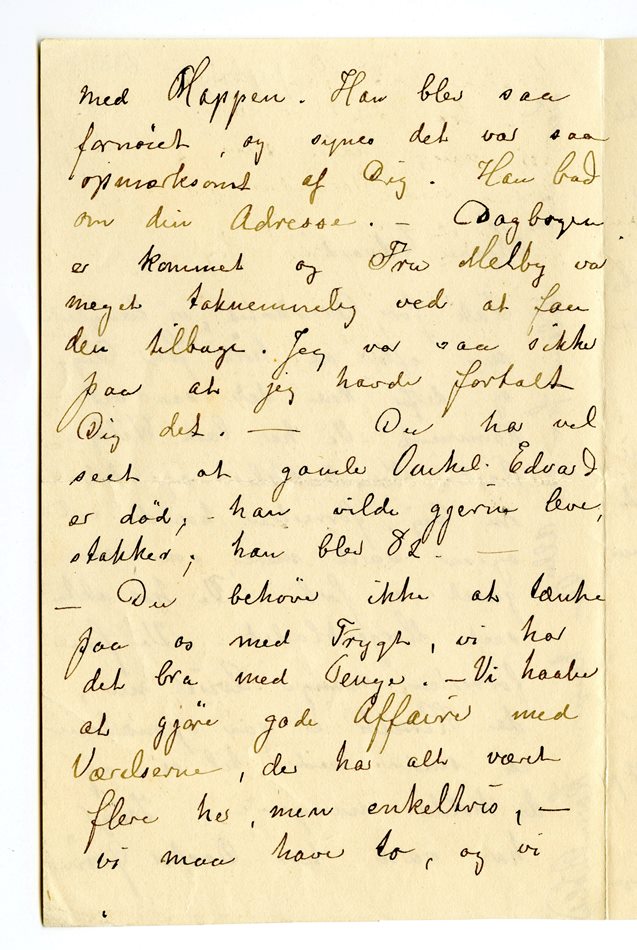 med Mappen. Han blev saa
fornøiet, og synes det var saa
opmærksomt af Dig. Han bad
om din Adresse. — Dagbogen
er kommet og Fru Melby var
meget taknemmelig ved at faa
den tilbage. Jeg var saa sikker
paa at jeg havde fortalt
Dig det. — Du har vel
seet at gamle Onkel Edvard
er død, han vilde gjerne leve,
stakker, han blev 82. —
— Du behøver ikke at tænke
paa os med Frygt, vi har
det bra med Penge. — Vi haaber
at gjøre gode Affairer med
Værelserne, der har alt været
flere her, men enkeltvis, —
vi maa have to, og vi